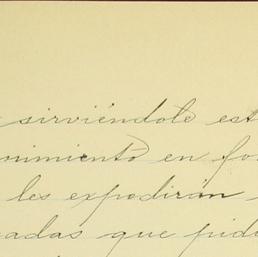 sirviéndole est
nimiento en fo
les expedirán
adas que pida